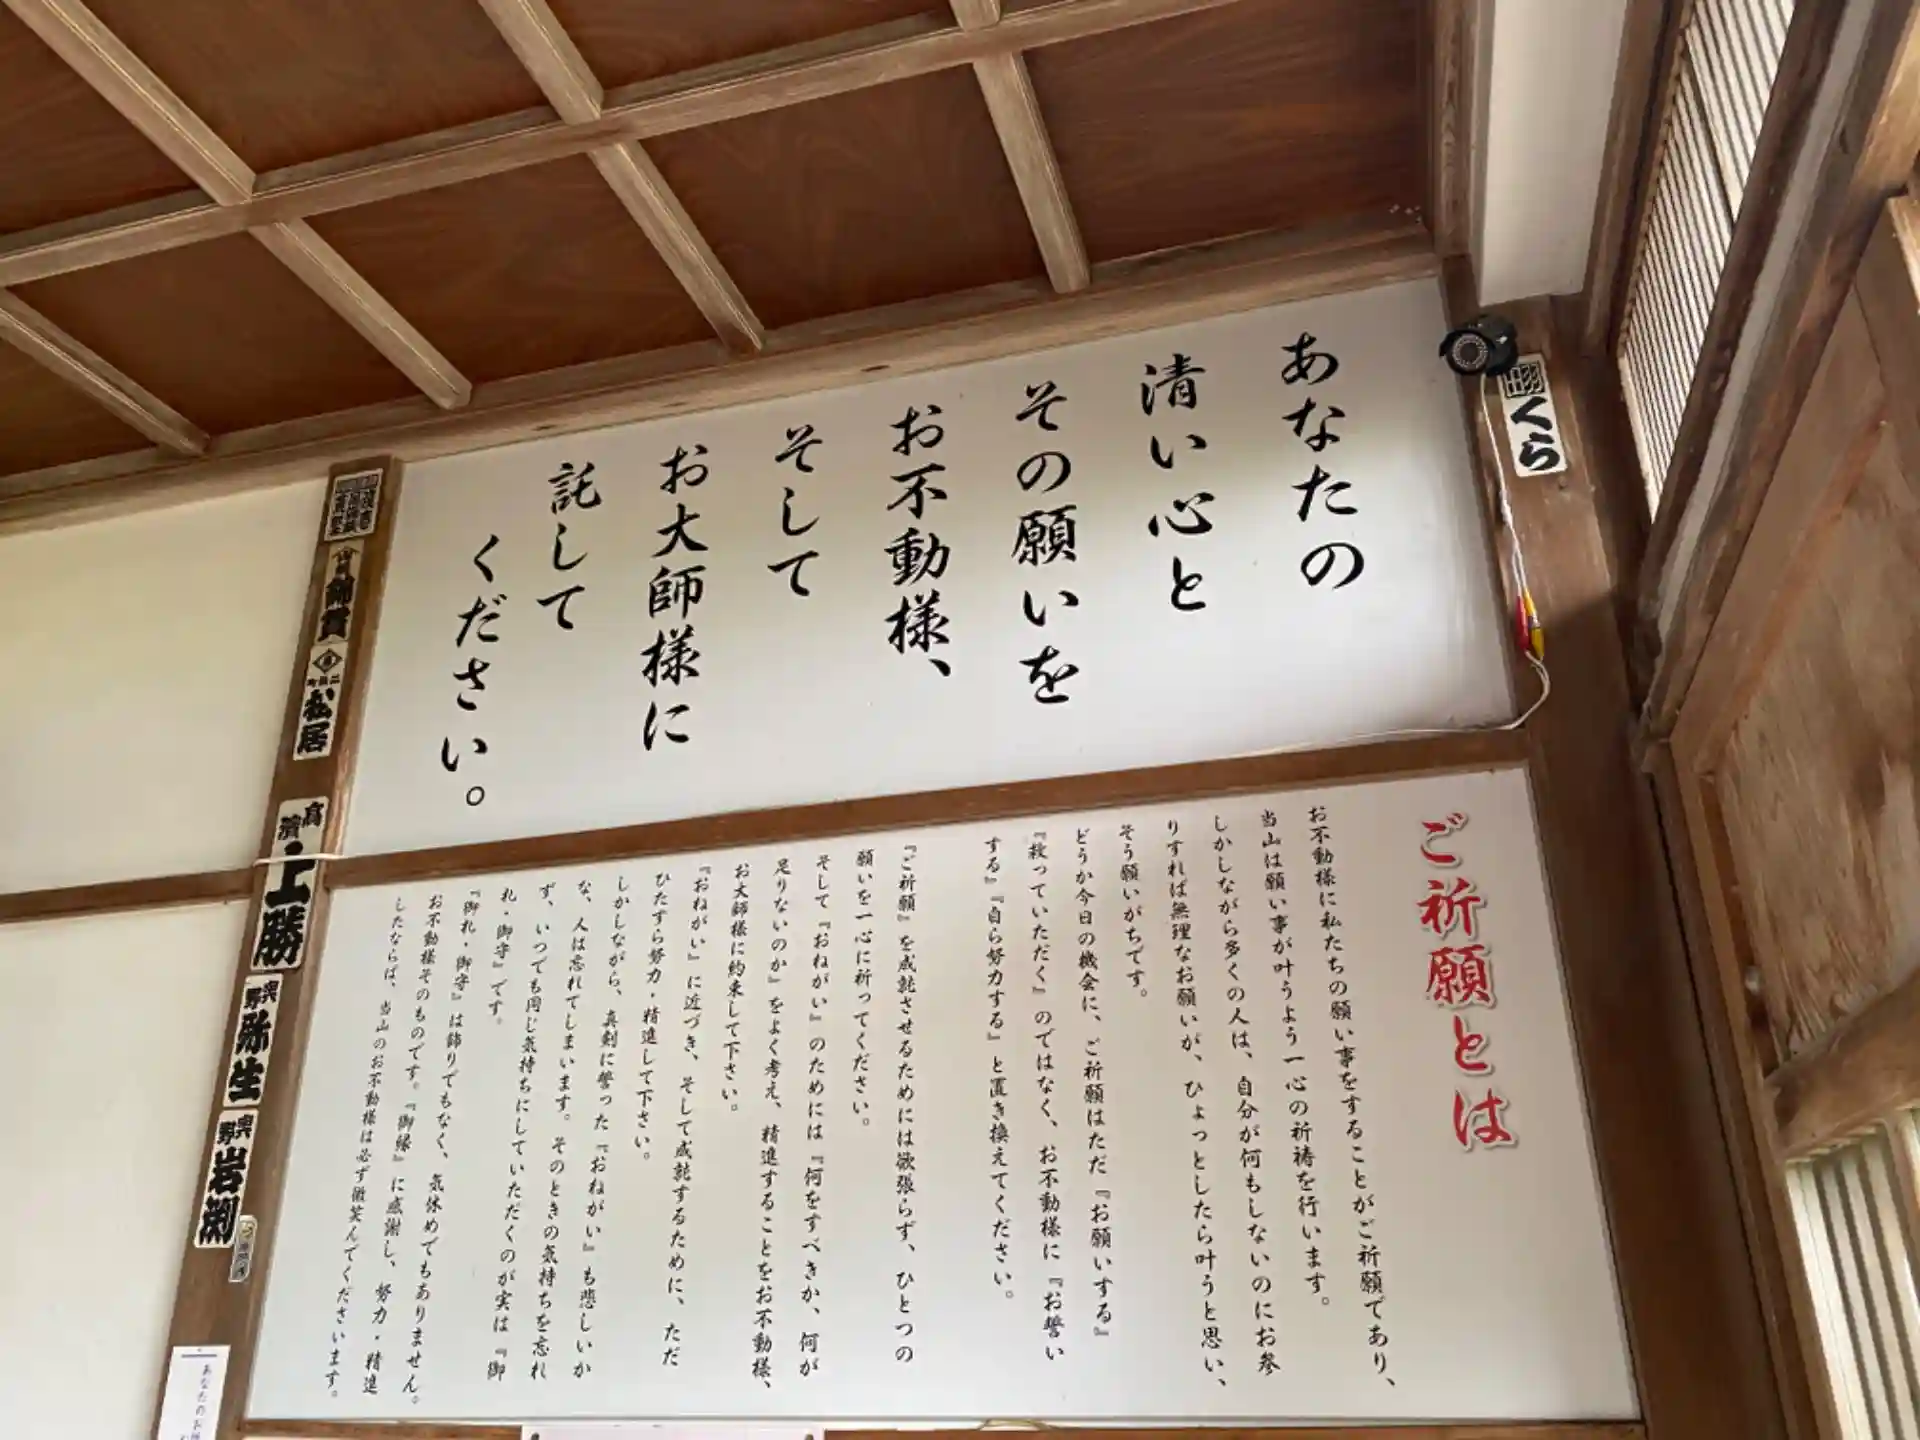 あなたの
清い心と
その願いを
お不動様、
そして
お大師様に
託して
ください。
ご祈願とは
お不動様に私たちの願い事をすることがご祈願であり、
当山は願い事が叶うよう一心の祈祷を行います。
しかしながら多くの人は、自分が何もしないのにお参
りすれば無理なお願いが、ひょっとしたら叶うと思い、
そう願いがちです。
どうか今日の機会に、ご祈願はただ『お願いする』
『救っていただく』のではなく、お不動様に『お誓い
する』『自ら努力する』と置き換えてください。
『ご祈願』を成就させるためには欲張らず、ひとつの
願いを一心に祈ってください。
そして『おねがい』のためには『何をすべきか、何が
足りないのか』をよく考え、精進することをお不動様、
お大師様に約束して下さい。
『おねがい』に近づき、そして成就するために、ただ
ひたすら努力・精進して下さい。
しかしながら、真剣に誓った『おねがい』も悲しいか
な、人は忘れてしまいます。そのときの気持ちを忘れ
ず、いつでも同じ気持ちにしていただくのが実は『御
札・御守』です。
『御札・御守』は飾りでもなく、気休めでもありません。
お不動様そのものです。『御縁』に感謝し、努力・精進
したならば、当山のお不動様は必ず微笑んでくださいます。
くら
松居
上勝
奥野
弥生
奥野
岩渕